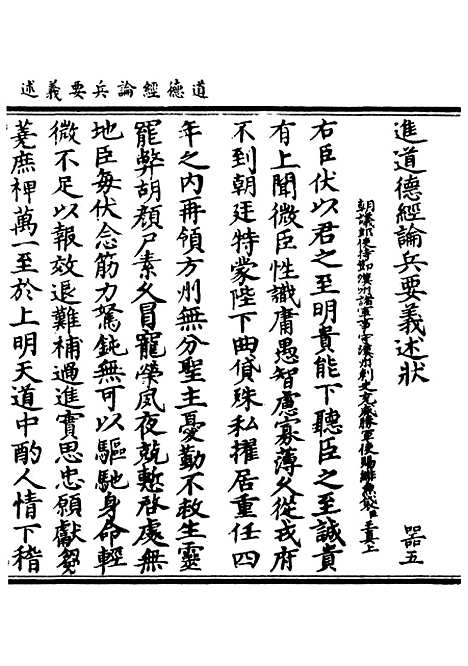 道德經論兵要義述
進道德經論兵要義述狀
器五
朝議郎使持節漢州諸軍事守漢州刺史充威勝軍使賜緋魚袋臣王真上
右臣伏以君之至明貴能下聽臣之至誠貴
有上聞微臣性識庸愚智慮寡薄久從戎府
不到朝廷特蒙陛下曲貸殊私擢居重任四
年之內再領方州無分聖主憂勤不救生靈
罷弊胡顏尸素久冒寵榮夙夜兢慙啓處無
地臣每伏念筋力駑鈍無可以驅馳身命輕
微不足以報效退難補過進實思忠願獻芻
蕘庶裨萬一至於上明天道中酌人情下稽